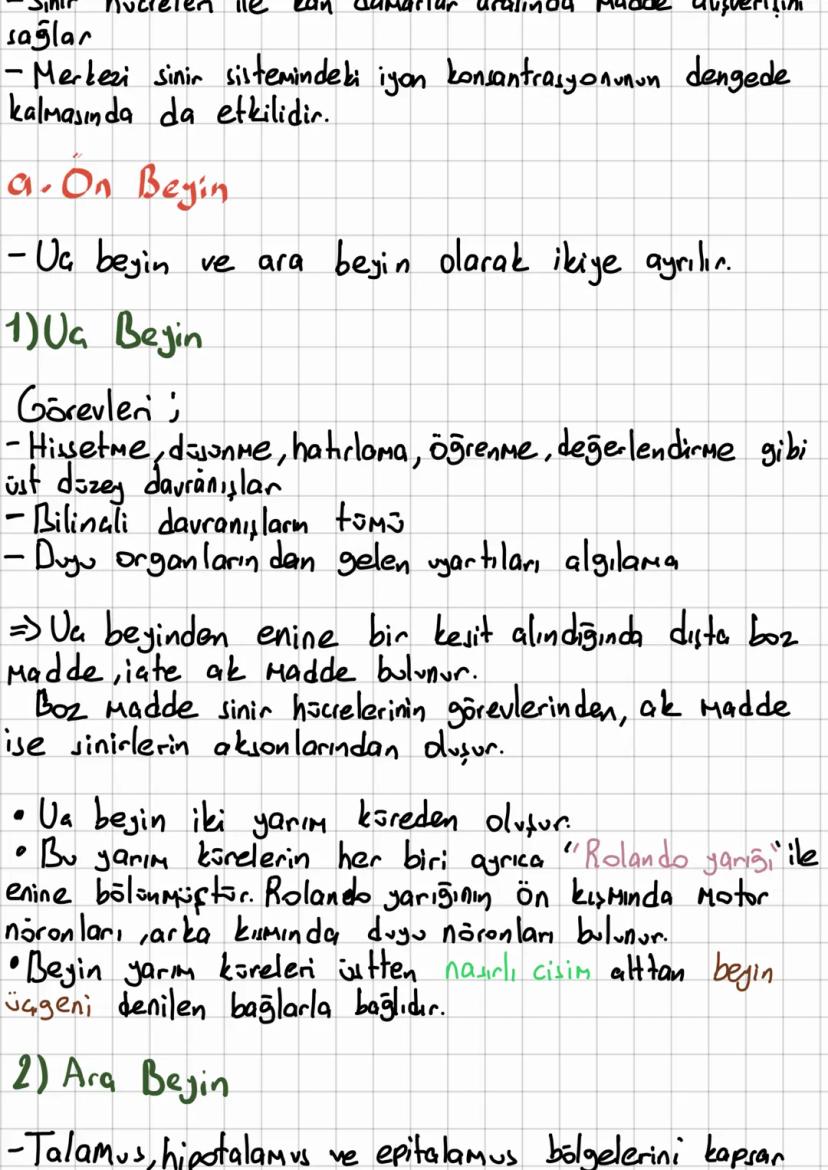 - Sinir hücreleri ile kan damarları arasında madde alışverişini
sağlar
- Merkezi sinir sistemindeki iyon konsantrasyonunun dengede
kalmasında da etkilidir.
a. Ön Beyin
- Uç beyin ve ara beyin olarak ikiye ayrılır.
1) Uç Beyin
Görevleri ;
- Hissetme, düşünme, hatırlama, öğrenme, değerlendirme gibi
üst düzey davranışlar
- Bilinçli davranışların tümü
- Duyu organlarından gelen uyartıları algılama
=> Uç beyinden enine bir kesit alındığında dışta boz
madde, içte ak madde bulunur.
Boz madde sinir hücrelerinin görevlerinden, ak madde
ise sinirlerin aksonlarından oluşur.
• Uç beyin iki yarım küreden oluşur.
• Bu yarım kürelerin her biri ayrıca "Rolando yarığı" ile
enine bölünmüştür. Rolando yarığının ön kısmında motor
nöronları, arka kısmında duyu nöronları bulunur.
• Beyin yarım küreleri üstten nasırlı cisim alttan beyin
üçgeni denilen bağlarla bağlıdır.
2) Ara Beyin
- Talamus, hipotalamus ve epitalamus bölgelerini kapsar